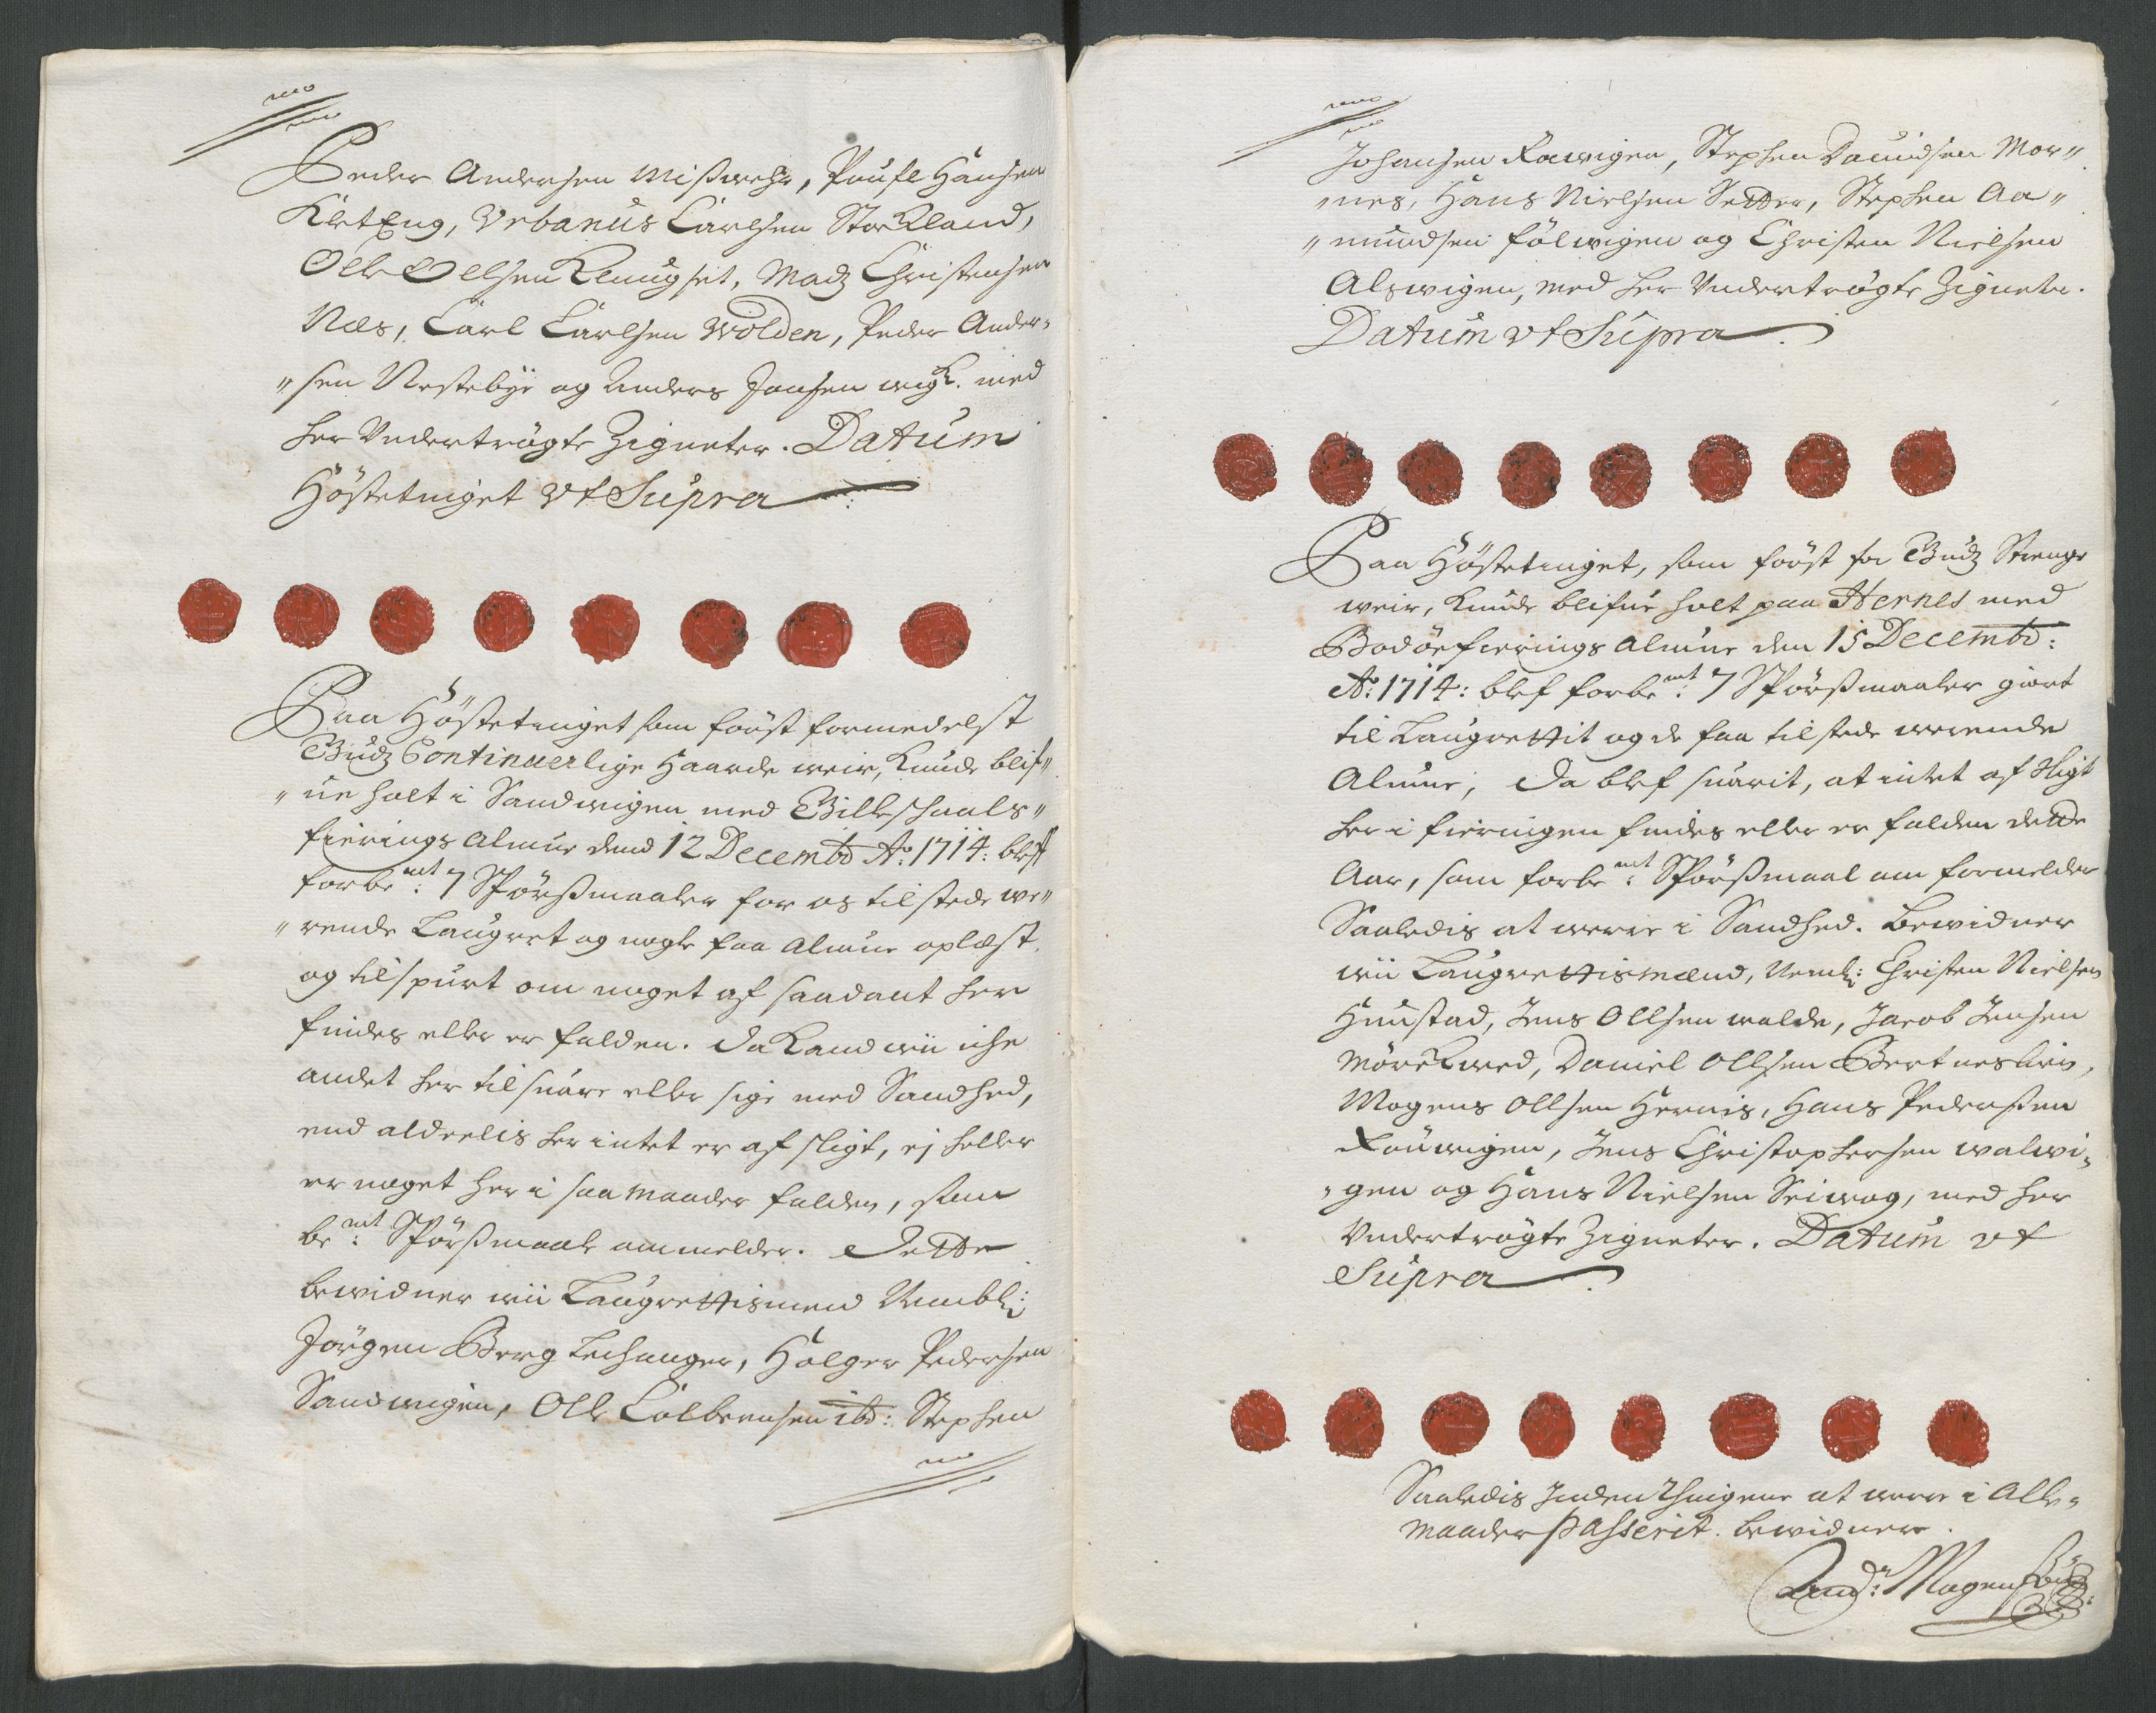 Peder Andersen Misswehr, Poufl Hansen
KletEng, Vrbanus Carlsen Storland,
Olle Ollsen Klungset, Madz Christensen
Næs, Carl Carlsen Wolden, Peder Ander„
„sen Westebye og Anders Jonsen wigh. med
her Undertrögte Zigneter. Datum
Höstetinget vt Supra
Paa Höstetinget som först formedelst
Gudz Continuerlige Haarde weir, kunde blif„
„ue holt i Sandwigen med Gilleschaals„
fierings Almue dend 12 Decembr Ao: 1714: bleff
forbemt: 7 Spörssmaaler for os tilstede we„
„rende Laugret og nogle faa Almue oplæst.
og tilspurt om noget af saadant her
findes eller er falden. da kand wii iche
andet her til suare eller sige med Sandhed,
end aldeelis her intet er af sligt, ej heller
er noget her i saa maader falden, som
bemt: Spörssmaale ommelder. Dette
bewidner wii Laugrettismend Nembl:
Jörgen Berg Lechanger, Holger Pedersen
Sandwigen, Olle Colbensen ibd: Stephen
Johansen Rawigen, Stephen Dauidsen Mor„
„nes, Hans Nielsen Setter, Stephen Aa„
„mundsen fölwigen og Christen Nielsen
Alswigen, med her Undertrögte Zigneter.
Datum vt Supra
Paa Höstetinget, som först for Gudz Strenge
weir, kunde blifue holt paa Hernes med
Bodöefierings Almue den 15 Decembr:
Ao: 1714: blef forbemt: 7 Spörssmaaler giort
til Laugrettit og de faa tilstede werende
Almue; da blef suarit, at intet af sligt
her i fieringen findes eller er falden dette
Aar, som forbemt: Spörssmaal om formelder
Saaledis at werre i Sandhed. Bewidner
wii Laugrettismænd, Neml: Christen Nielsen
Hunstad, Jens Ollsen walde, Jacob Jensen
Mörkwed, Daniel Ollsen Bertneslien,
Mogens Ollsen Hernis, Hans Pedersen
Rauwigen, Jens Christophersen walwi„
„gen og Hans Nielsen Seiwog, med her
Undertrögte Zigneter. Datum vt
Supra
Saaledis Inden Thingene at were i Alle„
maader passerit. bewidner.
And: Mogens